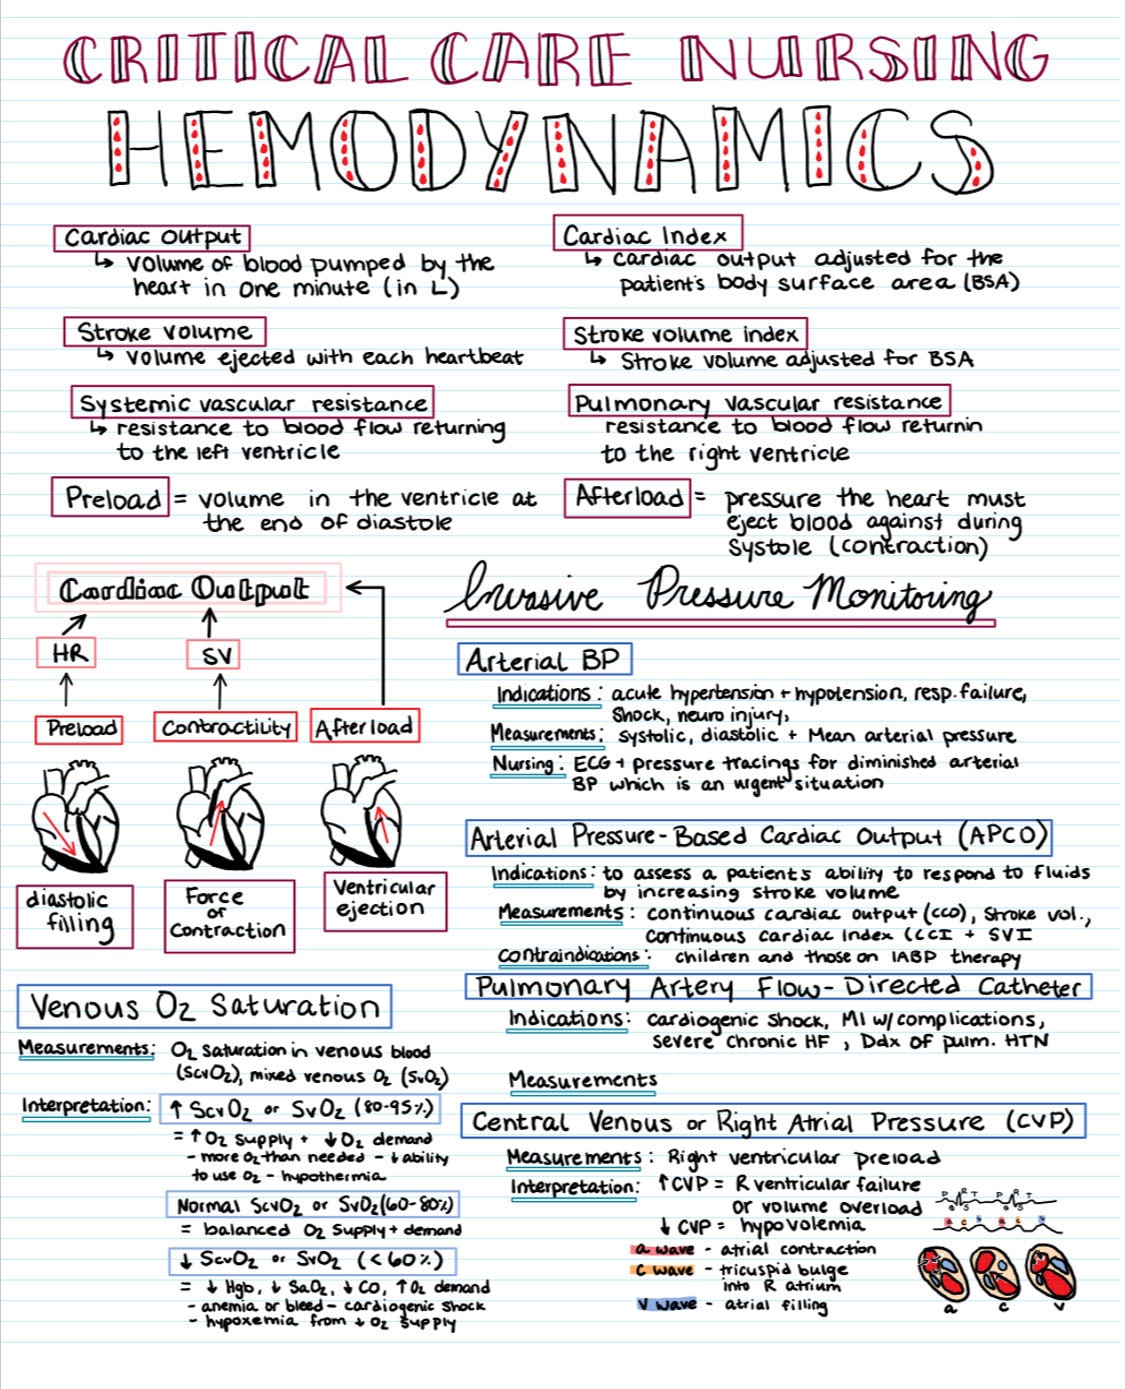 CRITICAL CARE NURSING
HEMODYNAMICS
Cardiac Output
↳ volume of blood pumped by the
heart in one minute (in L)
Cardiac Index
↳ cardiac output adjusted for the
patient's body surface area (BSA)
Stroke volume
↳ volume ejected with each heartbeat
Stroke volume index
↳ Stroke volume adjusted for BSA
Systemic vascular resistance
↳ resistance to blood flow returning
to the left ventricle
Pulmonary vascular resistance
resistance to blood flow returnin
to the right ventricle
Preload = volume in the ventricle at
the end of diastole
Afterload = pressure the heart must
eject blood against during
Systole (contraction)
Cardiac Output
HR
SV
Preload
Contractility
Afterload
diastolic
filling
Force
of
Contraction
Ventricular
ejection
Venous O2 Saturation
Measurements: O2 saturation in venous blood
(ScvO2), mixed venous O2 (SvO2)
Interpretation: ↑ ScvO2 or SvO2 (80-95%)
= ↑O2 supply + ↓O2 demand
- more O2 than needed - ↓ ability
to use O2 - hypothermia
Normal ScvO2 or SvO2 (60-80%)
= balanced O2 supply + demand
↓ ScvO2 or SvO2 (<60%)
= ↓ Hgb, ↓ SaO2, ↓ CO, ↑O2 demand
- anemia or bleed - cardiogenic shock
- hypoxemia from ↓ O2 supply
Invasive Pressure Monitoring
Arterial BP
Indications: acute hypertension + hypotension, resp. failure,
Shock, neuro injury,
Measurements: systolic, diastolic + Mean arterial pressure
Nursing: ECG + pressure tracings for diminished arterial
BP which is an urgent situation
Arterial Pressure-Based Cardiac Output (APCO)
Indications: to assess a patients ability to respond to fluids
by increasing stroke volume
Measurements: continuous cardiac output (CCO), Stroke vol.,
Continuous Cardiac Index (CCI + SVI
Contraindications: children and those on IABP therapy
Pulmonary Artery Flow-Directed Catheter
Indications: cardiogenic shock, MI w/complications,
severe chronic HF, Ddx of pulm. HTN
Measurements
Central Venous or Right Atrial Pressure (CVP)
Measurements: Right ventricular preload
Interpretation: ↑CVP = R ventricular failure
or volume overload
↓ CVP = hypovolemia
a wave - atrial contraction
c wave - tricuspid bulge
into R atrium
v wave - atrial filling
a c v